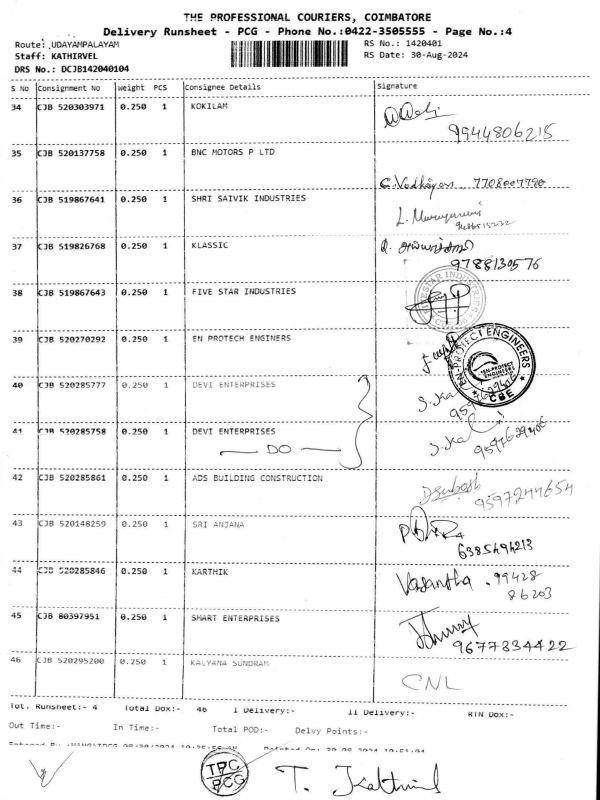 THE PROFESSIONAL COURIERS, COIMBATORE
Delivery Runsheet - PCG - Phone No.:0422-3505555 - Page No.:4
Route: ,UDAYAMPALAYAM RS No.: 1420401
Staff: KATHIRVEL RS Date: 30-Aug-2024
DRS No.: DCJB142040104
S No Consignment No Weight PCS Consignee Details Signature
34 CJB 520303971 0.250 1 KOKILAM
9944806215
35 CJB 520137758 0.250 1 BNC MOTORS P LTD
7708007790
36 CJB 519867641 0.250 1 SHRI SAIVIK INDUSTRIES
L.
37 CJB 519826768 0.250 1 KLASSIC
9788130576
38 CJB 519867643 0.250 1 FIVE STAR INDUSTRIES
FIVESTAR INDUSTRIES
39 CJB 520270292 0.250 1 EN PROTECH ENGINERS
EN-PROTECT ENGINEERS
EN-PROTECT ENGINEERS
★ CBE ★
40 CJB 520285777 0.250 1 DEVI ENTERPRISES
S.Ka
41 CJB 520285758 0.250 1 DEVI ENTERPRISES
— DO — S.Ka
9597629406
42 CJB 520285861 0.250 1 ADS BUILDING CONSTRUCTION
9597244654
43 CJB 520148259 0.250 1 SRI ANJANA
6385494213
44 CJB 520285846 0.250 1 KARTHIK Vasantha . 99428
86203
45 CJB 80397951 0.250 1 SMART ENTERPRISES
9677334422
46 CJB 520295200 0.250 1 KALYANA SUNDRAM
CNL
Tot. Runsheet:- 4 Total Dox:- 46 I Delivery:- II Delivery:- RTN Dox:-
Out Time:- In Time:- Total POD:- Delvy Points:-
TPC
PCG
T.